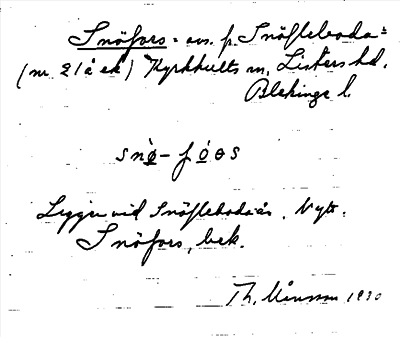 Snöfors = avs. fr. Snöflebodа =
(nr 21 å ek) Kyrkhults sn, Listers hd.
Blekinge l.
snö̀ - fó̱ɵs
Ligger vid Snöflebodaån. Nytt.
Snöfors, bek.
Th. Månsson 1930